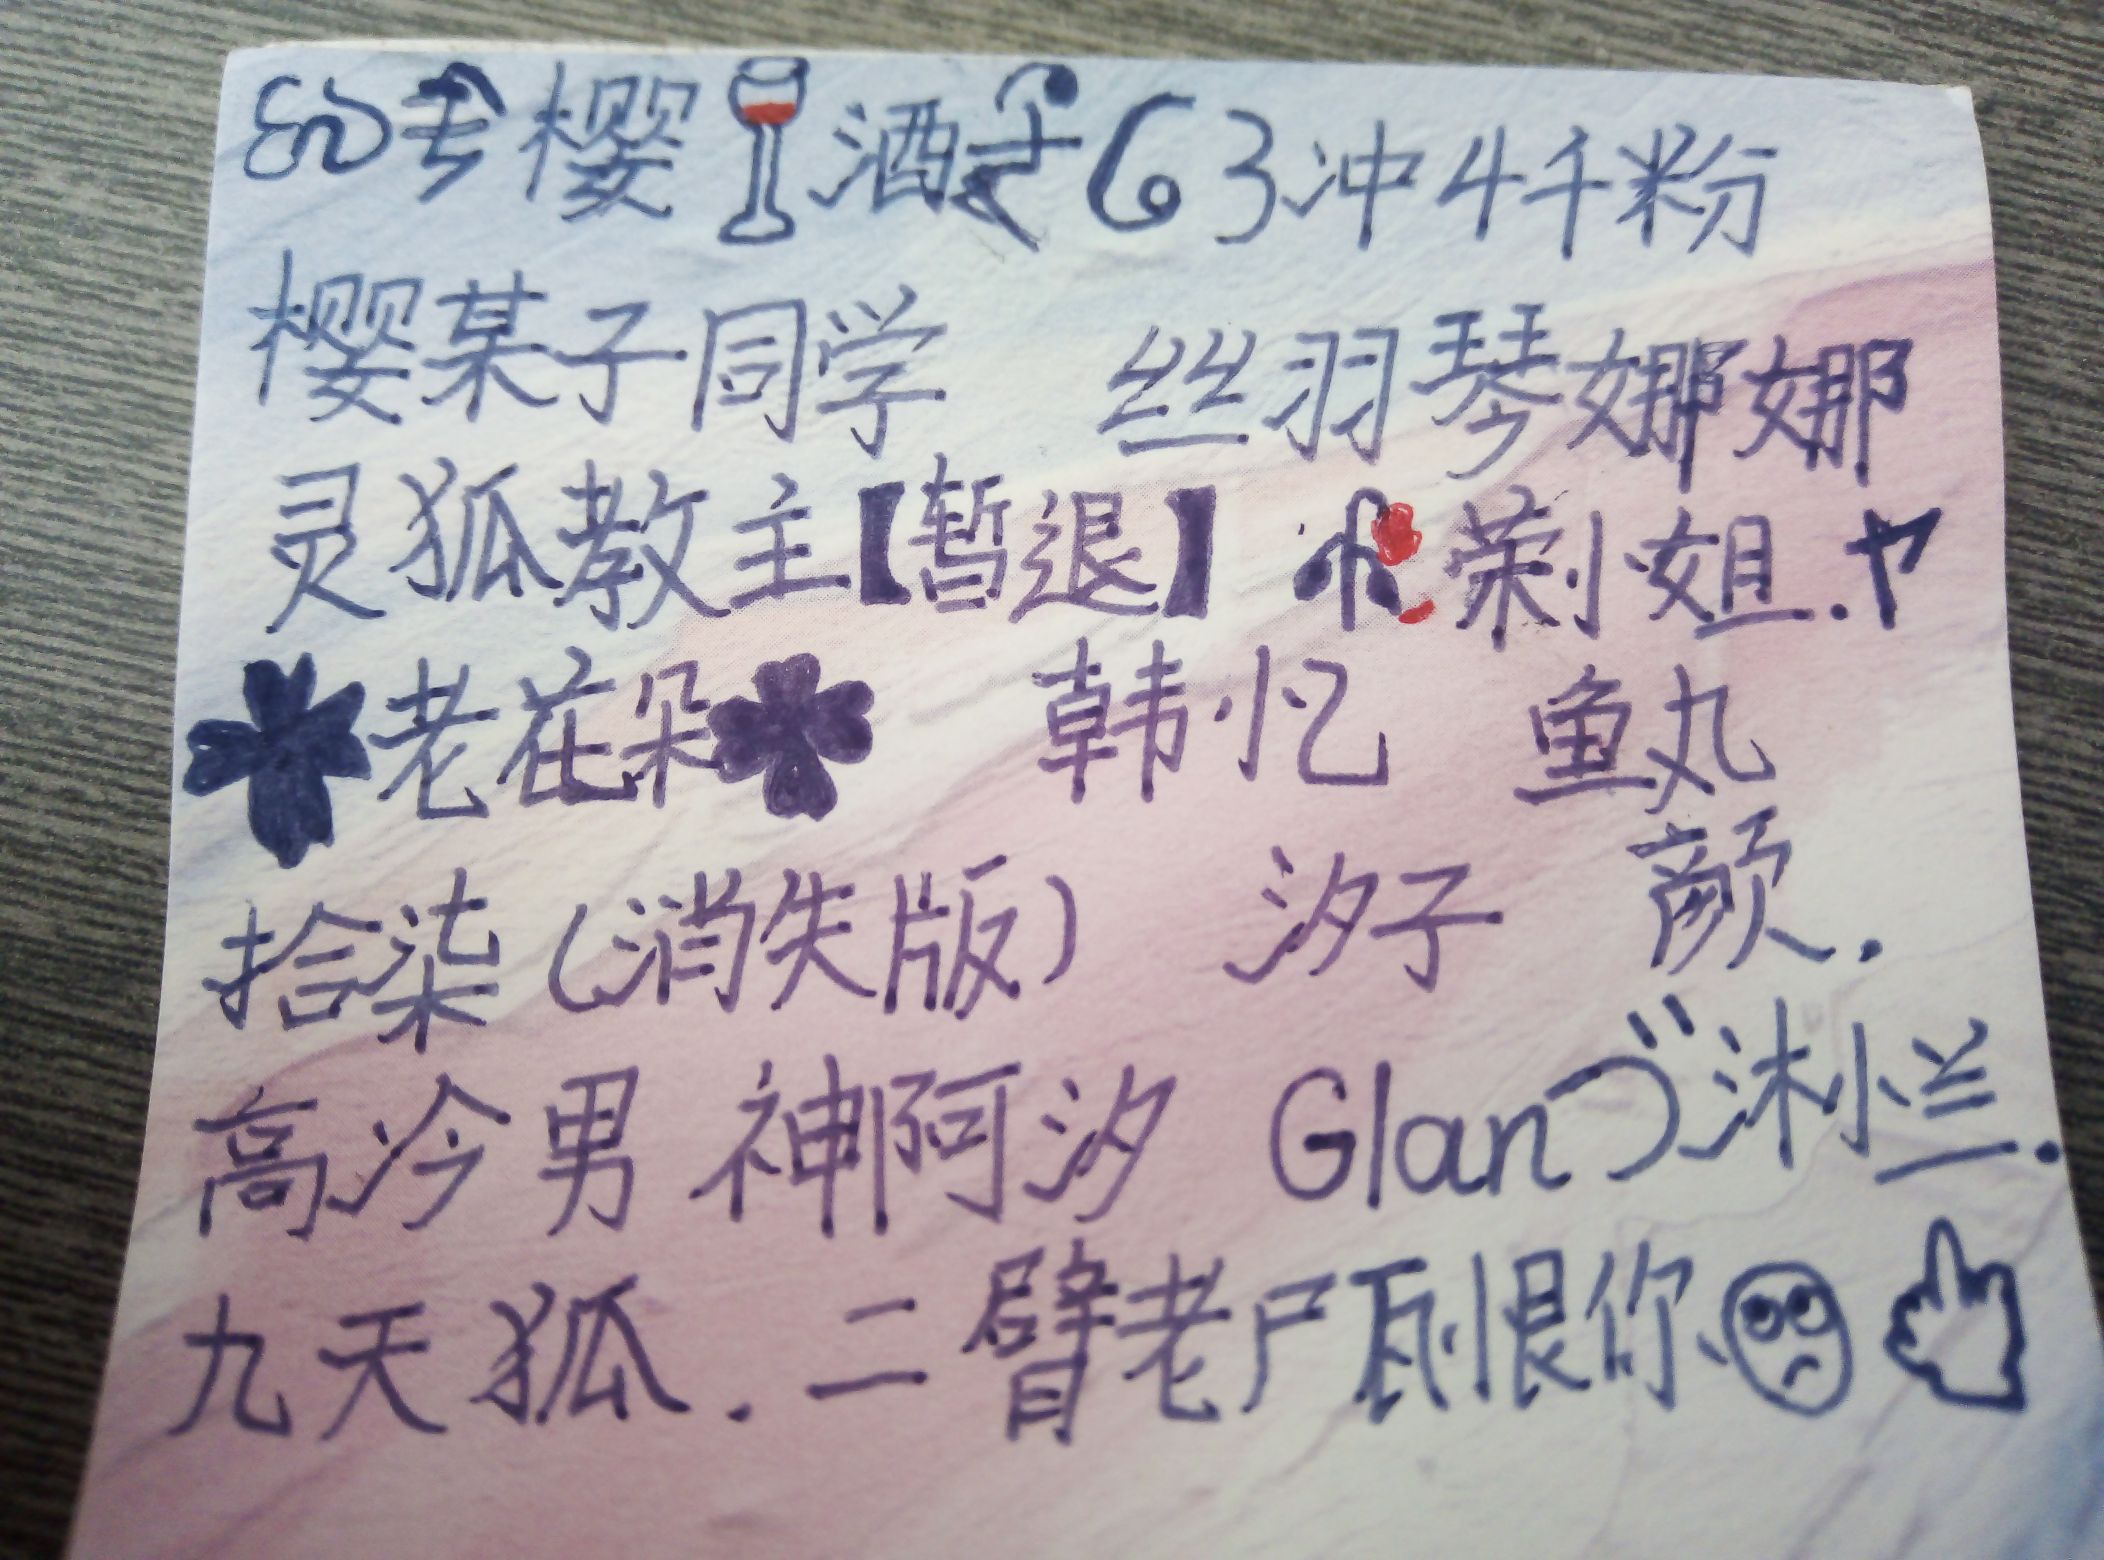 樱🍷酒 63冲4千粉
樱某子同学 丝羽琴娜娜
灵狐教主【暂退】 荣小姐.ヤ
老花朵 韩忆 鱼丸
拾柒(消失版) 汐子 颜.
高冷男神阿汐 Glanづ沐小烂.
九天狐.二臂老尸 恨你